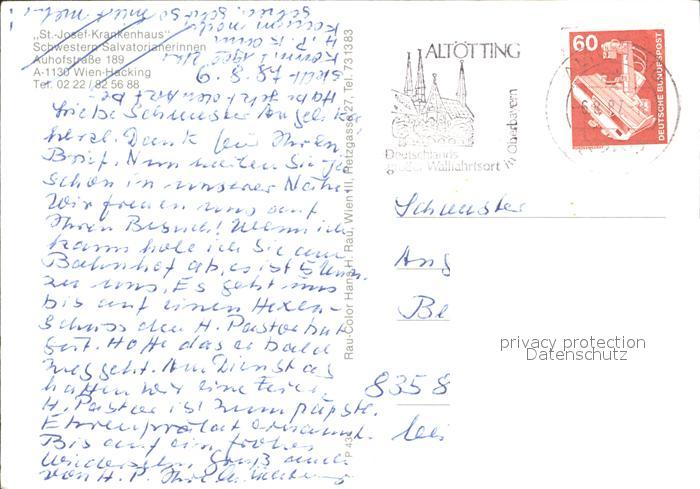 „St.-Josef-Krankenhaus"
Schwestern Salvatorianerinnen
Auhofstraße 189
A-1130 Wien-Hacking
Tel. 02 22 / 82 56 88
Liebe Schwester Angelika
herzl. Dank für Ihren
Brief. Nun weilen Sie ja
schon in unserer Nähe
Wir freuen uns auf
Ihren Besuch! Wenn ich
kann hole ich Sie am
Bahnhof ab, es ist 5 Min.
zu uns. Es geht uns
bis auf einen Hexen-
schuss den H. Pastor hat
gut. Hoffe das er bald
weggeht. Am Dienstag
hatten wir eine Feier,
H. Pastor ist zum päpstl.
Ehrenprälat ernannt.
Bis auf ein frohes
Wiedersehn Gruß auch
von H. P. Ihre
Rau-Color Hans H. Rau, Wien III, Hetzgasse 27, Tel. 7313 83
ALTÖTTING
Deutschlands
großer Wallfahrtsort in Oberbayern
60
DEUTSCHE BUNDESPOST
Schwester
Ang
Be
8358
privacy protection
Datenschutz